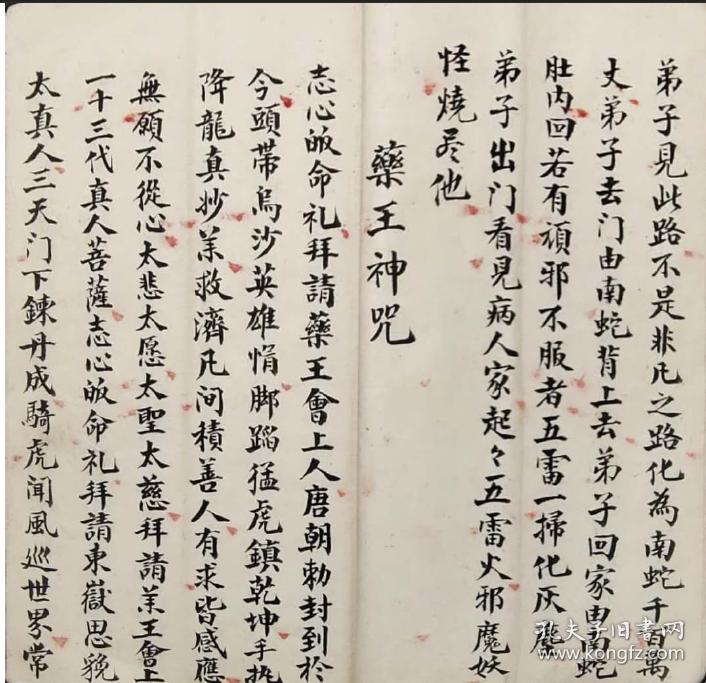 弟子見此路不是非凡之路化為南蛇千百萬
丈弟子去门由南蛇背上去弟子回家由南蛇
肚内回若有頑邪不服者五雷一掃化灰塵
弟子出门看見病人家起々五雷火邪魔妖
怪燒尽他
藥王神咒
志心皈命礼拜請藥王會上人唐朝勅封到於
今頭带烏沙英雄帽脚蹈猛虎鎮乾坤手执
降龍真妙羊救濟凡间積善人有求皆感應
無願不從心太悲太愿太聖太慈拜請羊王會上
一十三代真人菩薩志心皈命礼拜請東嶽思邈
太真人三天门下鍊丹成騎虎闻風巡世界常
孔夫子旧书网
www.kongfz.com